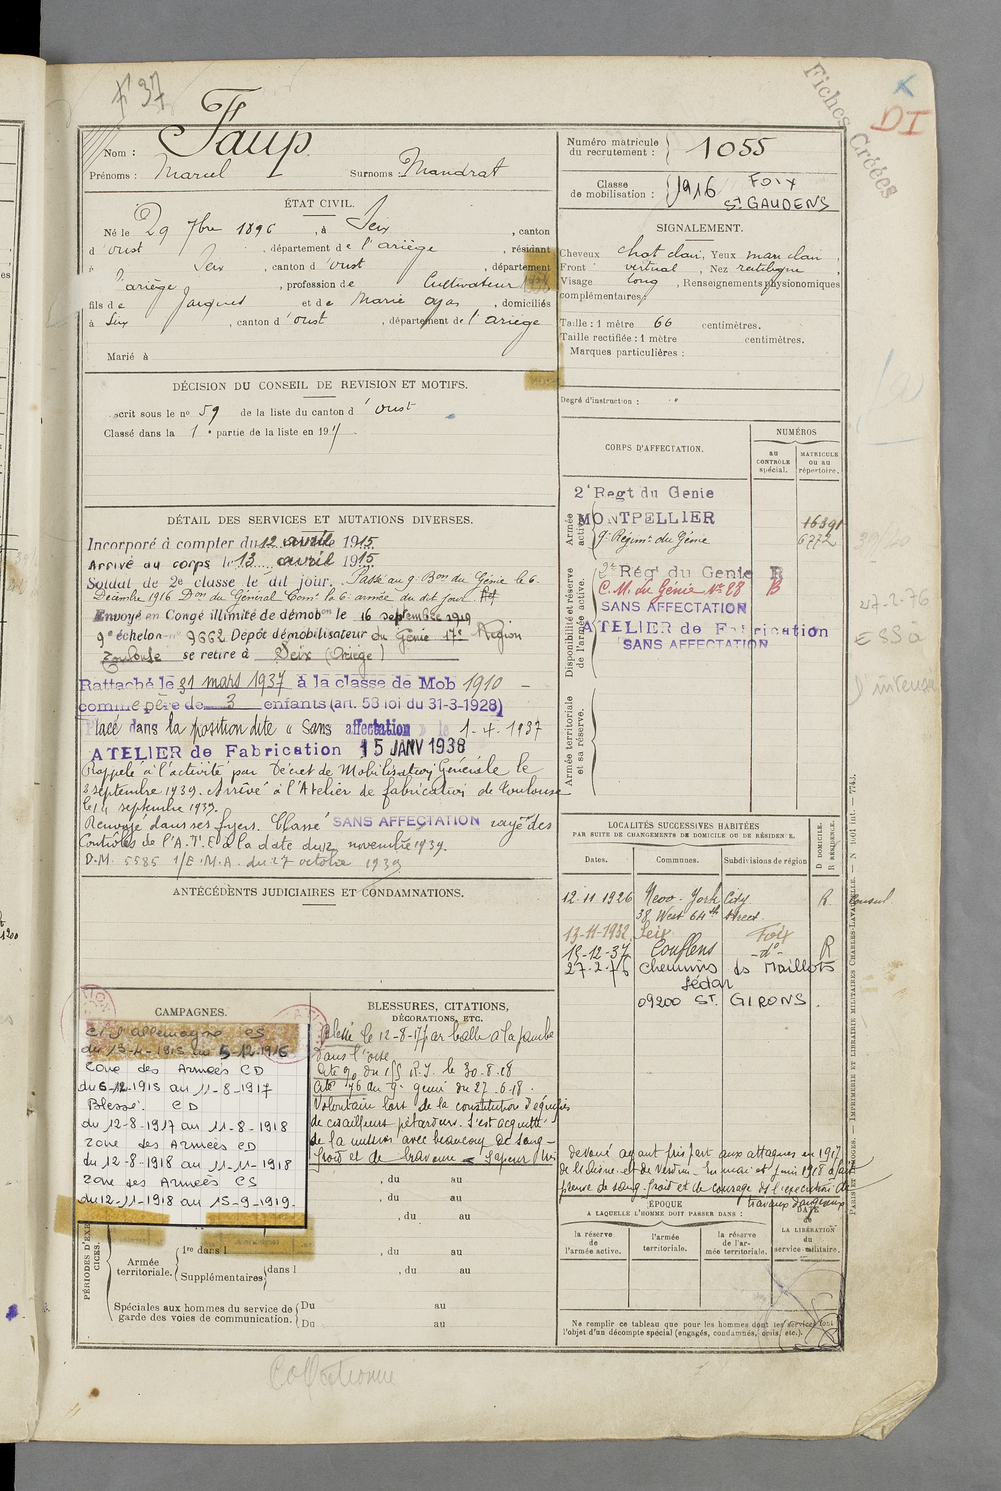 F 37
Fiches Créées
DI
Nom : Faup
Prénoms : Marcel Surnoms : Mandrat
Numéro matricule du recrutement : 1055
Classe de mobilisation : 1916 FOIX
St GAUDENS
ÉTAT CIVIL.
Né le 29 7bre 1896, à Seix, canton
d'oust, département de l'ariège, résidant
à Seix, canton d'oust, département
d'ariège, profession de Cultivateur
fils de Jacques et de Marie ajas, domiciliés
à Seix, canton d'oust, département de l'ariège
Marié à
SIGNALEMENT.
Cheveux chat clair, Yeux mar clair,
Front vertical, Nez rectiligne,
Visage long, Renseignements physionomiques
complémentaires :
Taille : 1 mètre 66 centimètres.
Taille rectifiée : 1 mètre centimètres.
Marques particulières :
Degré d'instruction :
DÉCISION DU CONSEIL DE REVISION ET MOTIFS.
Inscrit sous le no 59 de la liste du canton d'oust
Classé dans la 1e partie de la liste en 191
CORPS D'AFFECTATION.
NUMÉROS
AU CONTRÔLE spécial.
MATRICULE OU AU répertoire.
Armée active.
2e Regt du Genie
MONTPELLIER
16391
9e Régimt du Génie 6772
Disponibilité et réserve de l'armée active.
2e Rég' du Genie R
C. M. du Génie No 28 B
SANS AFFECTATION
ATELIER de Fabrication
SANS AFFECTATION
Armée territoriale et sa réserve.
DÉTAIL DES SERVICES ET MUTATIONS DIVERSES.
Incorporé à compter du 12 avril 1915
Arrivé au corps le 13 avril 1915
Soldat de 2e classe le dit jour. Passé au 9e Bon du Génie le 6
Décembre 1916 Don du Général Comt la 6e armée du dit jour
Envoyé en Congé illimité de démobon le 16 septembre 1919
9e échelon no 9662 Dépôt démobilisateur du Génie 17e Région
Toulouse se retire à Seix (Ariège)
Rattaché le 31 mars 1937 à la classe de Mob 1910
comme père de 3 enfants (art. 58 loi du 31-3-1928)
Placé dans la position dite « Sans affectation » le 1-4-1937
ATELIER de Fabrication 15 JANV 1938
Rappelé à l'activité par Décret de Mobilisation Générale le
2 septembre 1939. Arrivé à l'Atelier de fabrication de Toulouse
le 14 septembre 1939.
Renvoyé dans ses foyers. Classé SANS AFFECTATION rayé des
Contrôles de l'A.T.E à la date du 12 novembre 1939.
D.M. 5585 1/E.M.A. du 27 octobre 1939
ANTÉCÉDENTS JUDICIAIRES ET CONDAMNATIONS.
LOCALITÉS SUCCESSIVES HABITÉES
PAR SUITE DE CHANGEMENTS DE DOMICILE OU DE RÉSIDENCE.
Dates. Communes. Subdivisions de région
D DOMICILE. R RÉSIDENCE.
12.11.1926 New-York City R Consul
38 West 64th Street
13-11-1932 Seix Foix
15-12-37 Couflens -do- R
27-2-76 Chemins ds Maillots
Lédar
09200 ST. GIRONS.
27-2-76
CAMPAGNES.
Ct l'allemagne CS
du 13-4-1915 au 5-12-1916
Zone des Armées CD
du 6-12-1915 au 11-8-1917
Blessé. CD
du 12-8-1917 au 11-8-1918
Zone des Armées CD
du 12-8-1918 au 11-11-1918
Zone des Armées CS
du 12-11-1918 au 15-9-1919.
BLESSURES, CITATIONS,
DÉCORATIONS, ETC.
Blessé le 12-8-17 par balle à la jambe
dans l'oise
Cité du R.I. le 30.8.18
Cité 76 du 9e génie du 27.6.18.
Volontaire lors de la constitution d'équipes
de cisailleurs pétardeurs. S'est acquitté
de la mission avec beaucoup de sang-
froid et de bravoure - Sapeur très
dévoué ayant pris part aux attaques en 1917
de l'Aisne et de Verdun - En mai et juin 1918 a fait
preuve de sang-froid et de courage ds l'exécution de
travaux dangereux
PÉRIODES D'EXERCICES.
Armée territoriale.
1re dans l , du au
Supplémentaires dans l , du au
Spéciales aux hommes du service de garde des voies de communication.
Du au
Du au
ÉPOQUE
A LAQUELLE L'HOMME DOIT PASSER DANS :
la réserve de l'armée active.
l'armée territoriale.
la réserve de l'armée territoriale.
DATE de LA LIBÉRATION du service militaire.
Ne remplir ce tableau que pour les hommes dont les services font
l'objet d'un décompte spécial (engagés, condamnés, omis, etc.).
PARIS ET LIMOGES. — IMPRIMERIE ET LIBRAIRIE MILITAIRES CHARLES-LAVAUZELLE. — N° 1601 int — 774).